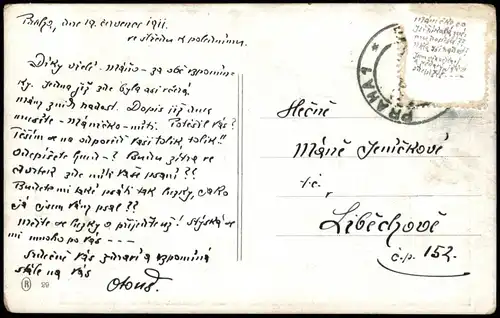 Praha, dne 19. července 1911.
ve středu k polednímu.
Díky vřelé - Máňo - za obě vzpomín-
ky. Jedna již zde byla asi včera
mám z nich radost. Dopis již dnes
musíte - Máničko - míti. Potěšil Vás?
Těším se na odpověď Vaši tolik, tolik!!
Odepíšete hned - ? Budu zítra ve
čtvrtek zde míti Vaše psaní??
Budete mi také psáti tak hezky, jako
já jsem Vám psal??
Mějte se hezky a přijeďte už! Stýská se
mi mnoho po Vás - - -
Srdečně Vás zdraví a vzpomíná
stále na Vás
Otouš.
R 29
PRAHA 1
Máničko
Slečně
Máně Jeníčkové
t.č.
Liběchově
č.p. 152.